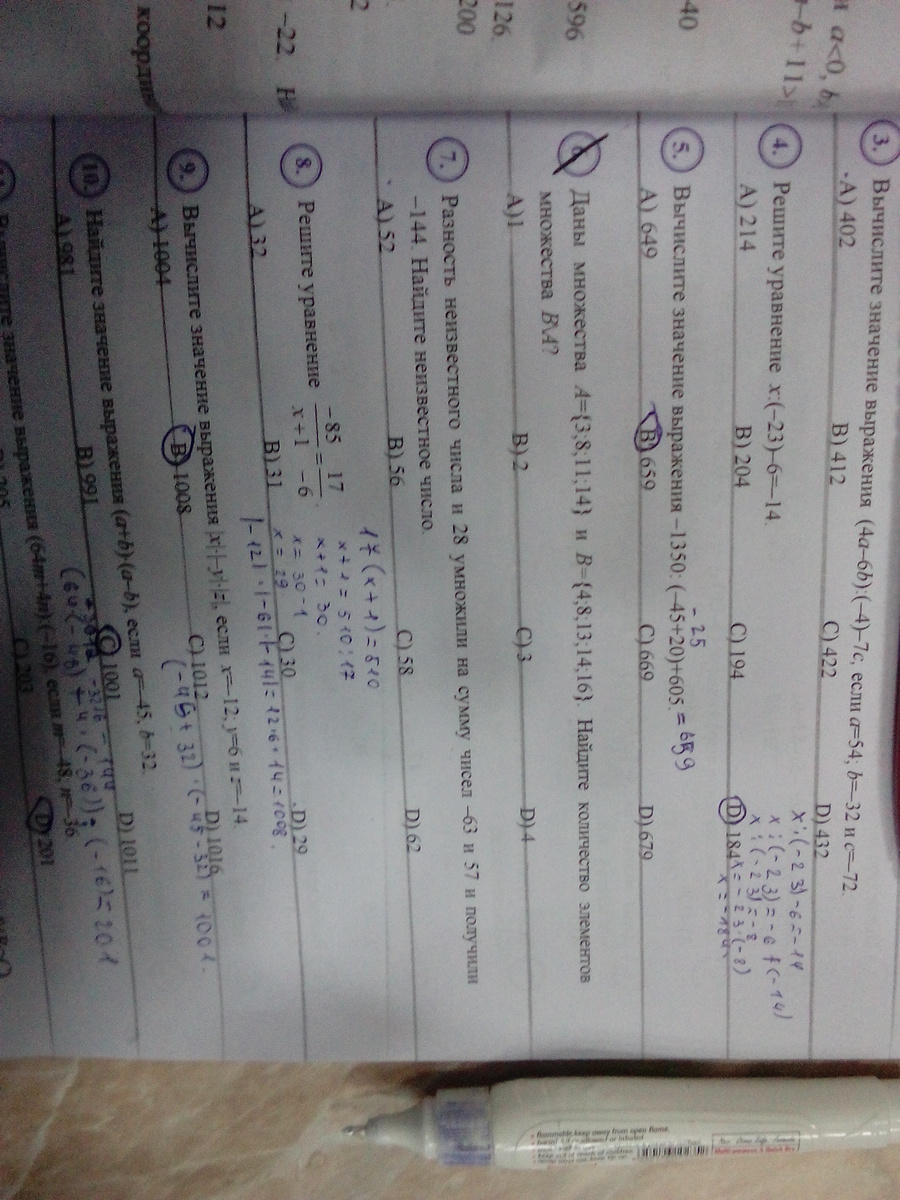 и a<0, b
-b+11>
40
596
126.
200
2
-22. Н
12
коорди
3. Вычислите значение выражения (4a–6b):(–4)–7c, если a=54; b=–32 и c=–72.
A) 402 B) 412 C) 422 D) 432
4. Решите уравнение x:(–23)–6=–14.
x:(-23)-6=-14
x:(-23)=-6+(-14)
x:(-23)=-8
A) 214 B) 204 C) 194 D) 184
x=-23·(-8)
x=-184
5. Вычислите значение выражения –1350:(–45+20)+605. = 659
-25
A) 649 B) 659 C) 669 D) 679
6. Даны множества A={3;8;11;14} и B={4;8;13;14;16}. Найдите количество элементов
множества B\A?
A) 1 B) 2 C) 3 D) 4
7. Разность неизвестного числа и 28 умножили на сумму чисел –63 и 57 и получили
–144. Найдите неизвестное число.
A) 52 B) 56 C) 58 D) 62
8. Решите уравнение –85/x+1=17/–6.
17(x+1)=510
x+1=510:17
x+1=30.
x=30-1
x=29
A) 32 B) 31 C) 30 D) 29
|-12|·|-6|·|-14|=12·6·14=1008.
9. Вычислите значение выражения |x|·|–y|·|z|, если x=–12; y=6 и z=–14.
A) 1004 B) 1008 C) 1012 D) 1016
(-45+32)·(-45-32)=1001.
10. Найдите значение выражения (a+b)·(a–b), если a=–45, b=32.
A) 981 B) 991 C) 1001 D) 1011
(64·(-48)+4·(-36)):(-16)=201
значение выражения (64m+4n):(–16), если m=–48; n=–36
C) 203 D) 201
flammable.keep away from open flame.